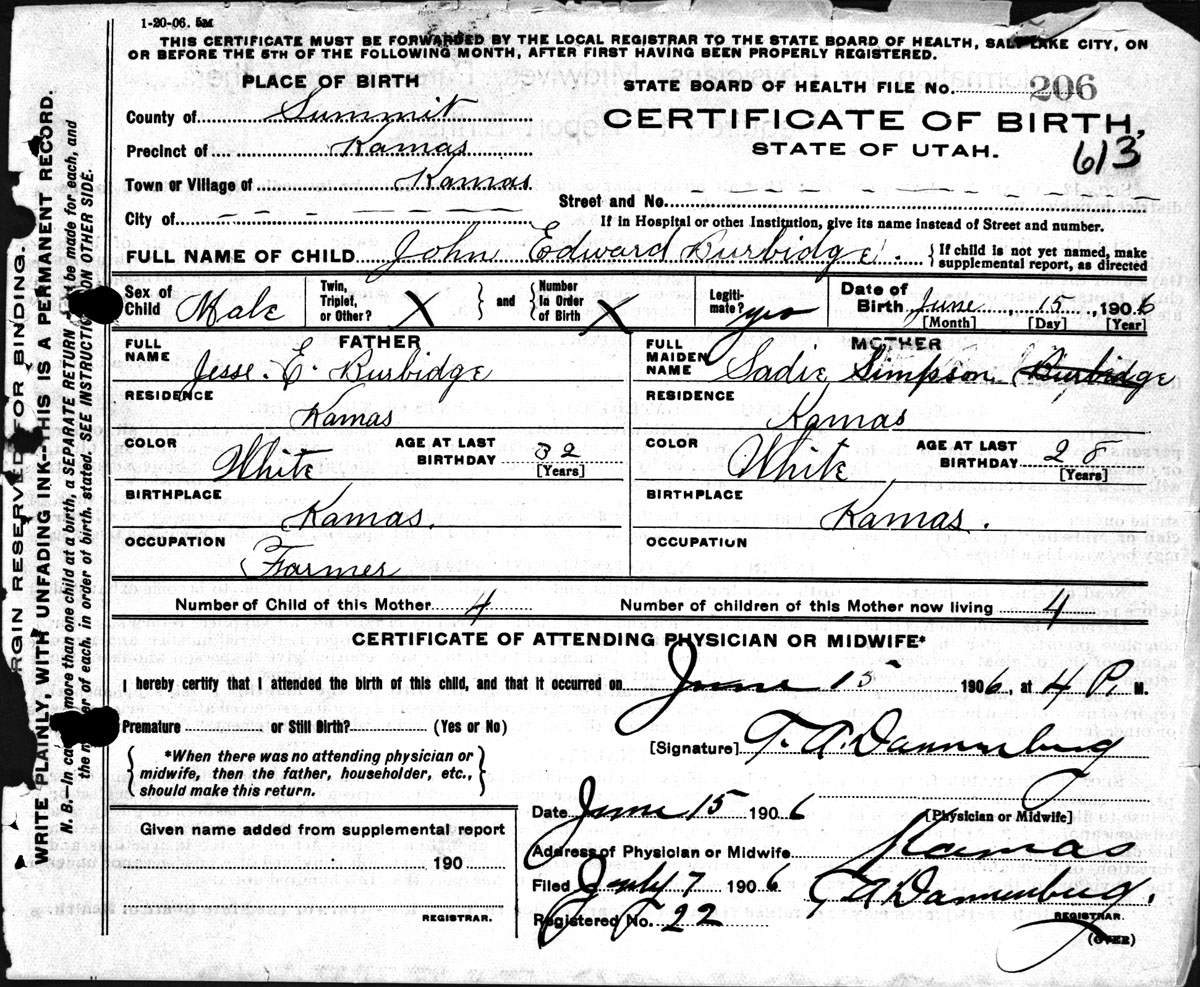 1-20-06. 5M
THIS CERTIFICATE MUST BE FORWARDED BY THE LOCAL REGISTRAR TO THE STATE BOARD OF HEALTH, SALT LAKE CITY, ON
OR BEFORE THE 5TH OF THE FOLLOWING MONTH, AFTER FIRST HAVING BEEN PROPERLY REGISTERED.
PLACE OF BIRTH
STATE BOARD OF HEALTH FILE No. 206
County of Summit
CERTIFICATE OF BIRTH,
Precinct of Kamas
STATE OF UTAH.
613
Town or Village of Kamas
Street and No.
City of
If in Hospital or other Institution, give its name instead of Street and number.
FULL NAME OF CHILD John Edward Burbidge. { If child is not yet named, make
supplemental report, as directed
Sex of Child Male
Twin, Triplet, or Other? X } and { Number In Order of Birth X
Legitimate? yes
Date of Birth June 15, 1906
[Month] [Day] [Year]
FATHER
FULL NAME Jesse. E. Burbidge
RESIDENCE Kamas
COLOR White
AGE AT LAST BIRTHDAY 32 [Years]
BIRTHPLACE Kamas.
OCCUPATION Farmer
MOTHER
FULL MAIDEN NAME Sadie Simpson Burbidge
RESIDENCE Kamas
COLOR White
AGE AT LAST BIRTHDAY 28 [Years]
BIRTHPLACE Kamas.
OCCUPATION
Number of Child of this Mother 4
Number of children of this Mother now living 4
CERTIFICATE OF ATTENDING PHYSICIAN OR MIDWIFE*
I hereby certify that I attended the birth of this child, and that it occurred on June 15 1906, at 4 P. M.
Premature or Still Birth? (Yes or No)
[Signature] T. A. Dannenburg
{ *When there was no attending physician or
midwife, then the father, householder, etc.,
should make this return. }
Date June 15 1906
[Physician or Midwife]
Given name added from supplemental report
190
REGISTRAR.
Address of Physician or Midwife Kamas
Filed July 7 1906 T A Dannenburg.
Registered No. 22
REGISTRAR.
(OVER)
MARGIN RESERVED FOR BINDING.
WRITE PLAINLY, WITH UNFADING INK--THIS IS A PERMANENT RECORD.
N. B.—In case more than one child at a birth, a SEPARATE RETURN be made for each, and
the number of each, in order of birth, stated. SEE INSTRUCTIONS ON OTHER SIDE.